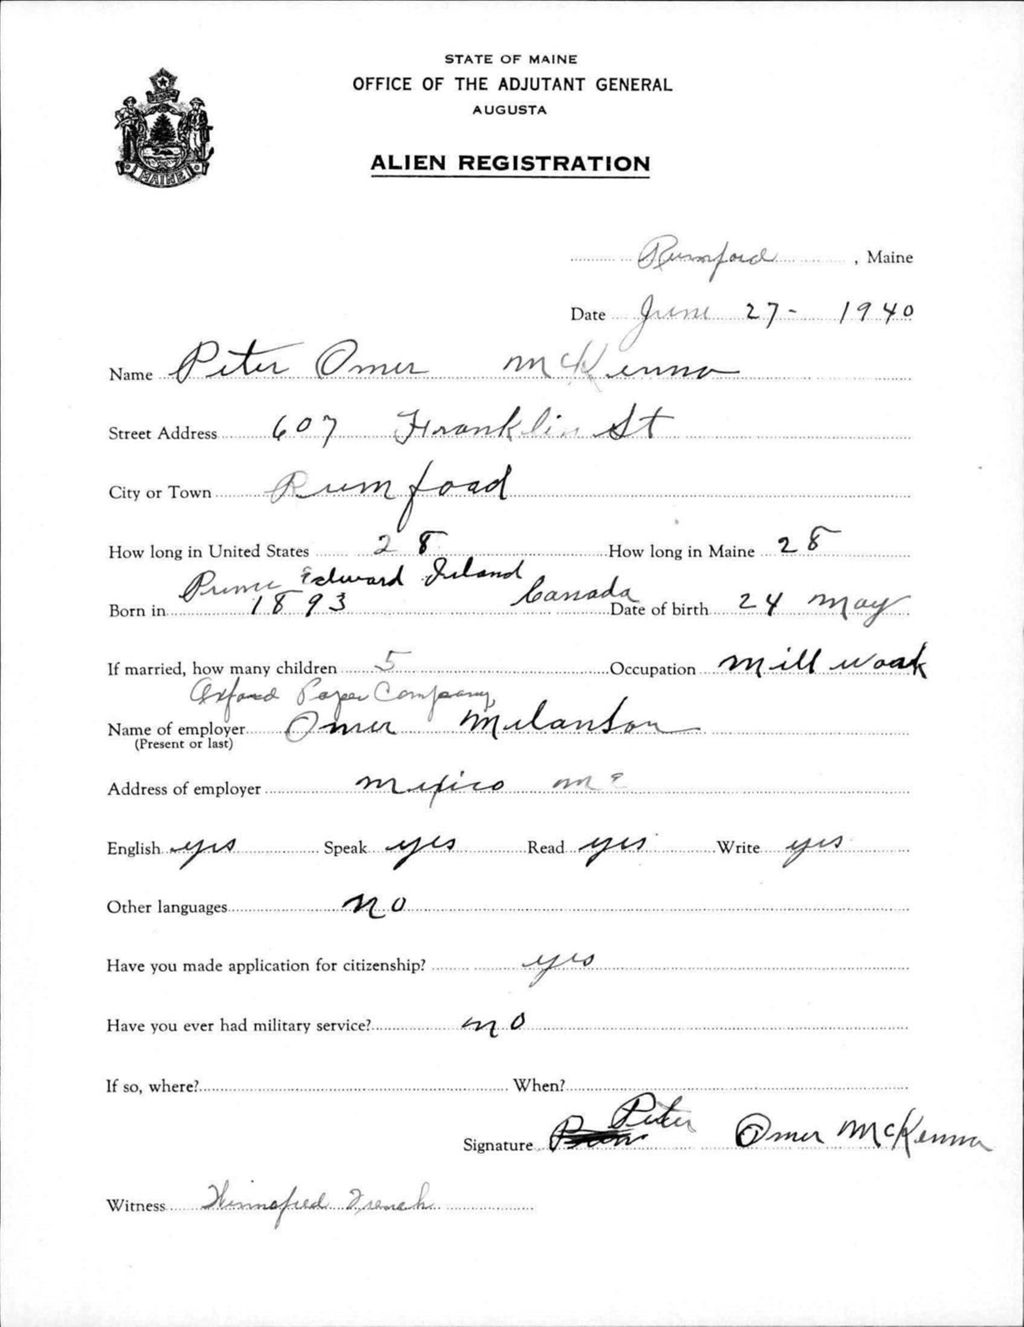 STATE OF MAINE
OFFICE OF THE ADJUTANT GENERAL
AUGUSTA
ALIEN REGISTRATION
MAINE
Rumford, Maine
Date June 27- 1940
Name Peter Omer McKenna
Street Address 607 Franklin St
City or Town Rumford
How long in United States 28 How long in Maine 28
Prince Edward Island Canada
Born in 1893 Date of birth 24 May
If married, how many children 5 Occupation Mill work
Oxford Paper Company
Name of employer Omer Melanson
(Present or last)
Address of employer Mexico Me
English yes Speak yes Read yes Write yes
Other languages no
Have you made application for citizenship? yes
Have you ever had military service? no
If so, where? When?
Signature Peter Omer McKenna
Witness Winnefred French